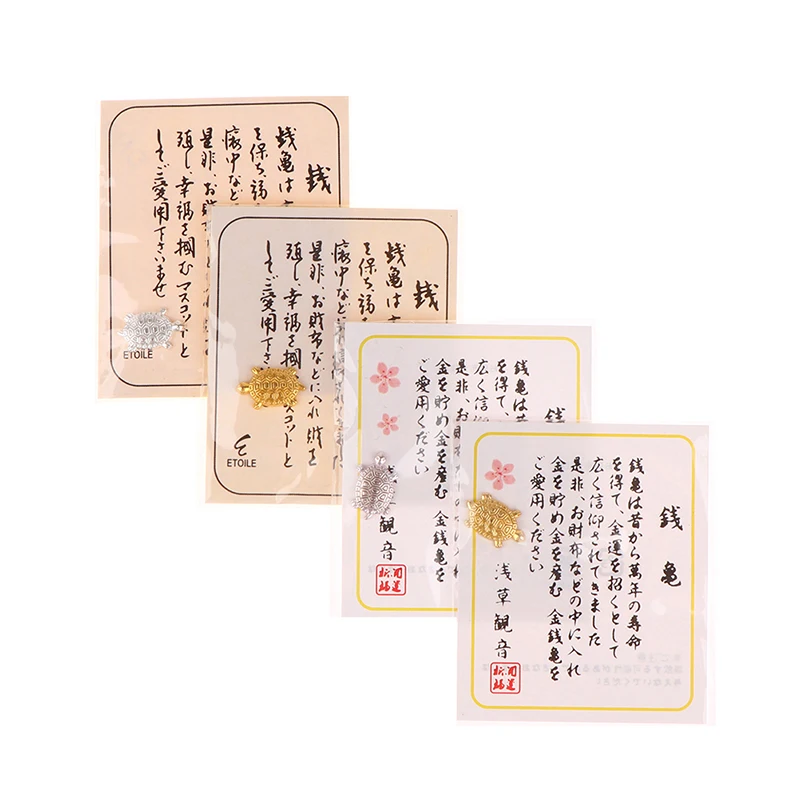 銭
銭亀は
を保ち、福
懐中など
是非、お
殖し、幸福を掴むマスコットと
してご愛用下さいませ
ETOILE
銭
銭亀は
を保ち、福
懐中など
是非、お財布などに入れ 銭を
殖し、幸福を掴 スコットと
してご愛用下さ
ETOILE
銭
銭亀は
を得て、
広く信仰
是非、お
金を貯め金を産む 金銭亀を
ご愛用ください
草観音
銭亀
銭亀は昔から萬年の寿命
を得て、金運を招くとして
広く信仰されてきました
是非、お財布などの中に入れ
金を貯め金を産む 金銭亀を
ご愛用ください
浅草観音